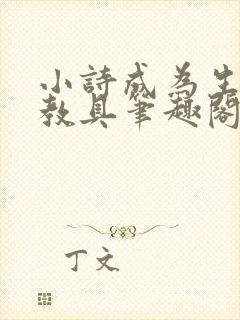 小詩成為生
教具筆趣閣
丁文